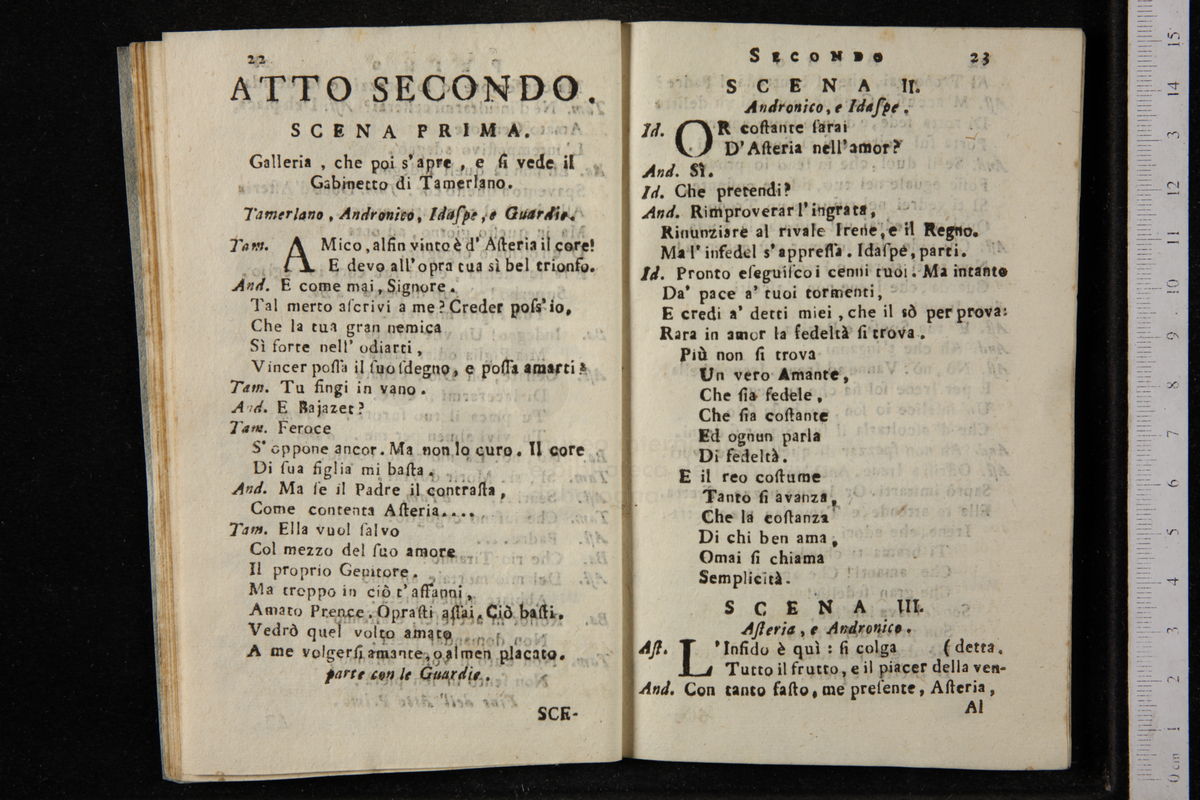 22
ATTO SECONDO.
SCENA PRIMA.
Galleria, che poi s'apre, e ſi vede il
Gabinetto di Tamerlano.
Tamerlano, Andronico, Idaſpe, e Guardie.
Tam. AMico, alfin vinto è d'Aſteria il core!
E devo all'opra tua sì bel trionfo.
And. E come mai, Signore.
Tal merto aſcrivi a me? Creder poſs'io,
Che la tua gran nemica
Sì forte nell'odiarti,
Vincer poſſa il ſuo ſdegno, e poſſa amarti?
Tam. Tu fingi in vano.
And. E Bajazet?
Tam. Feroce
S'oppone ancor. Ma non lo curo. Il core
Di ſua figlia mi baſta.
And. Ma ſe il Padre il contraſta,
Come contenta Aſteria....
Tam. Ella vuol ſalvo
Col mezzo del ſuo amore
Il proprio Genitore.
Ma troppo in ciò t'affanni,
Amato Prence. Opraſti aſſai. Ciò baſti.
Vedrò quel volto amato
A me volgerſi amante, o almen placato.
parte con le Guardie.
SCE-
SECONDO 23
SCENA II.
Andronico, e Idaſpe.
Id. OR coſtante ſarai
D'Aſteria nell'amor?
And. Sì.
Id. Che pretendi?
And. Rimproverar l'ingrata,
Rinunziare al rivale Irene, e il Regno.
Ma l'infedel s'appreſſa. Idaſpe, parti.
Id. Pronto eſeguiſco i cenni tuoi. Ma intanto
Da' pace a' tuoi tormenti,
E credi a' detti miei, che il sò per prova:
Rara in amor la fedeltà ſi trova.
Più non ſi trova
Un vero Amante,
Che ſia fedele,
Che ſia coſtante
Ed ognun parla
Di fedeltà.
E il reo coſtume
Tanto ſi avanza,
Che la coſtanza
Di chi ben ama,
Omai ſi chiama
Semplicità.
SCENA III.
Aſteria, e Andronico.
Aſt. L'Infido è quì: ſi colga (detta.
Tutto il frutto, e il piacer della ven-
And. Con tanto faſto, me preſente, Aſteria,
Al
0 cm 1 2 3 4 5 6 7 8 9 10 11 12 13 14 15